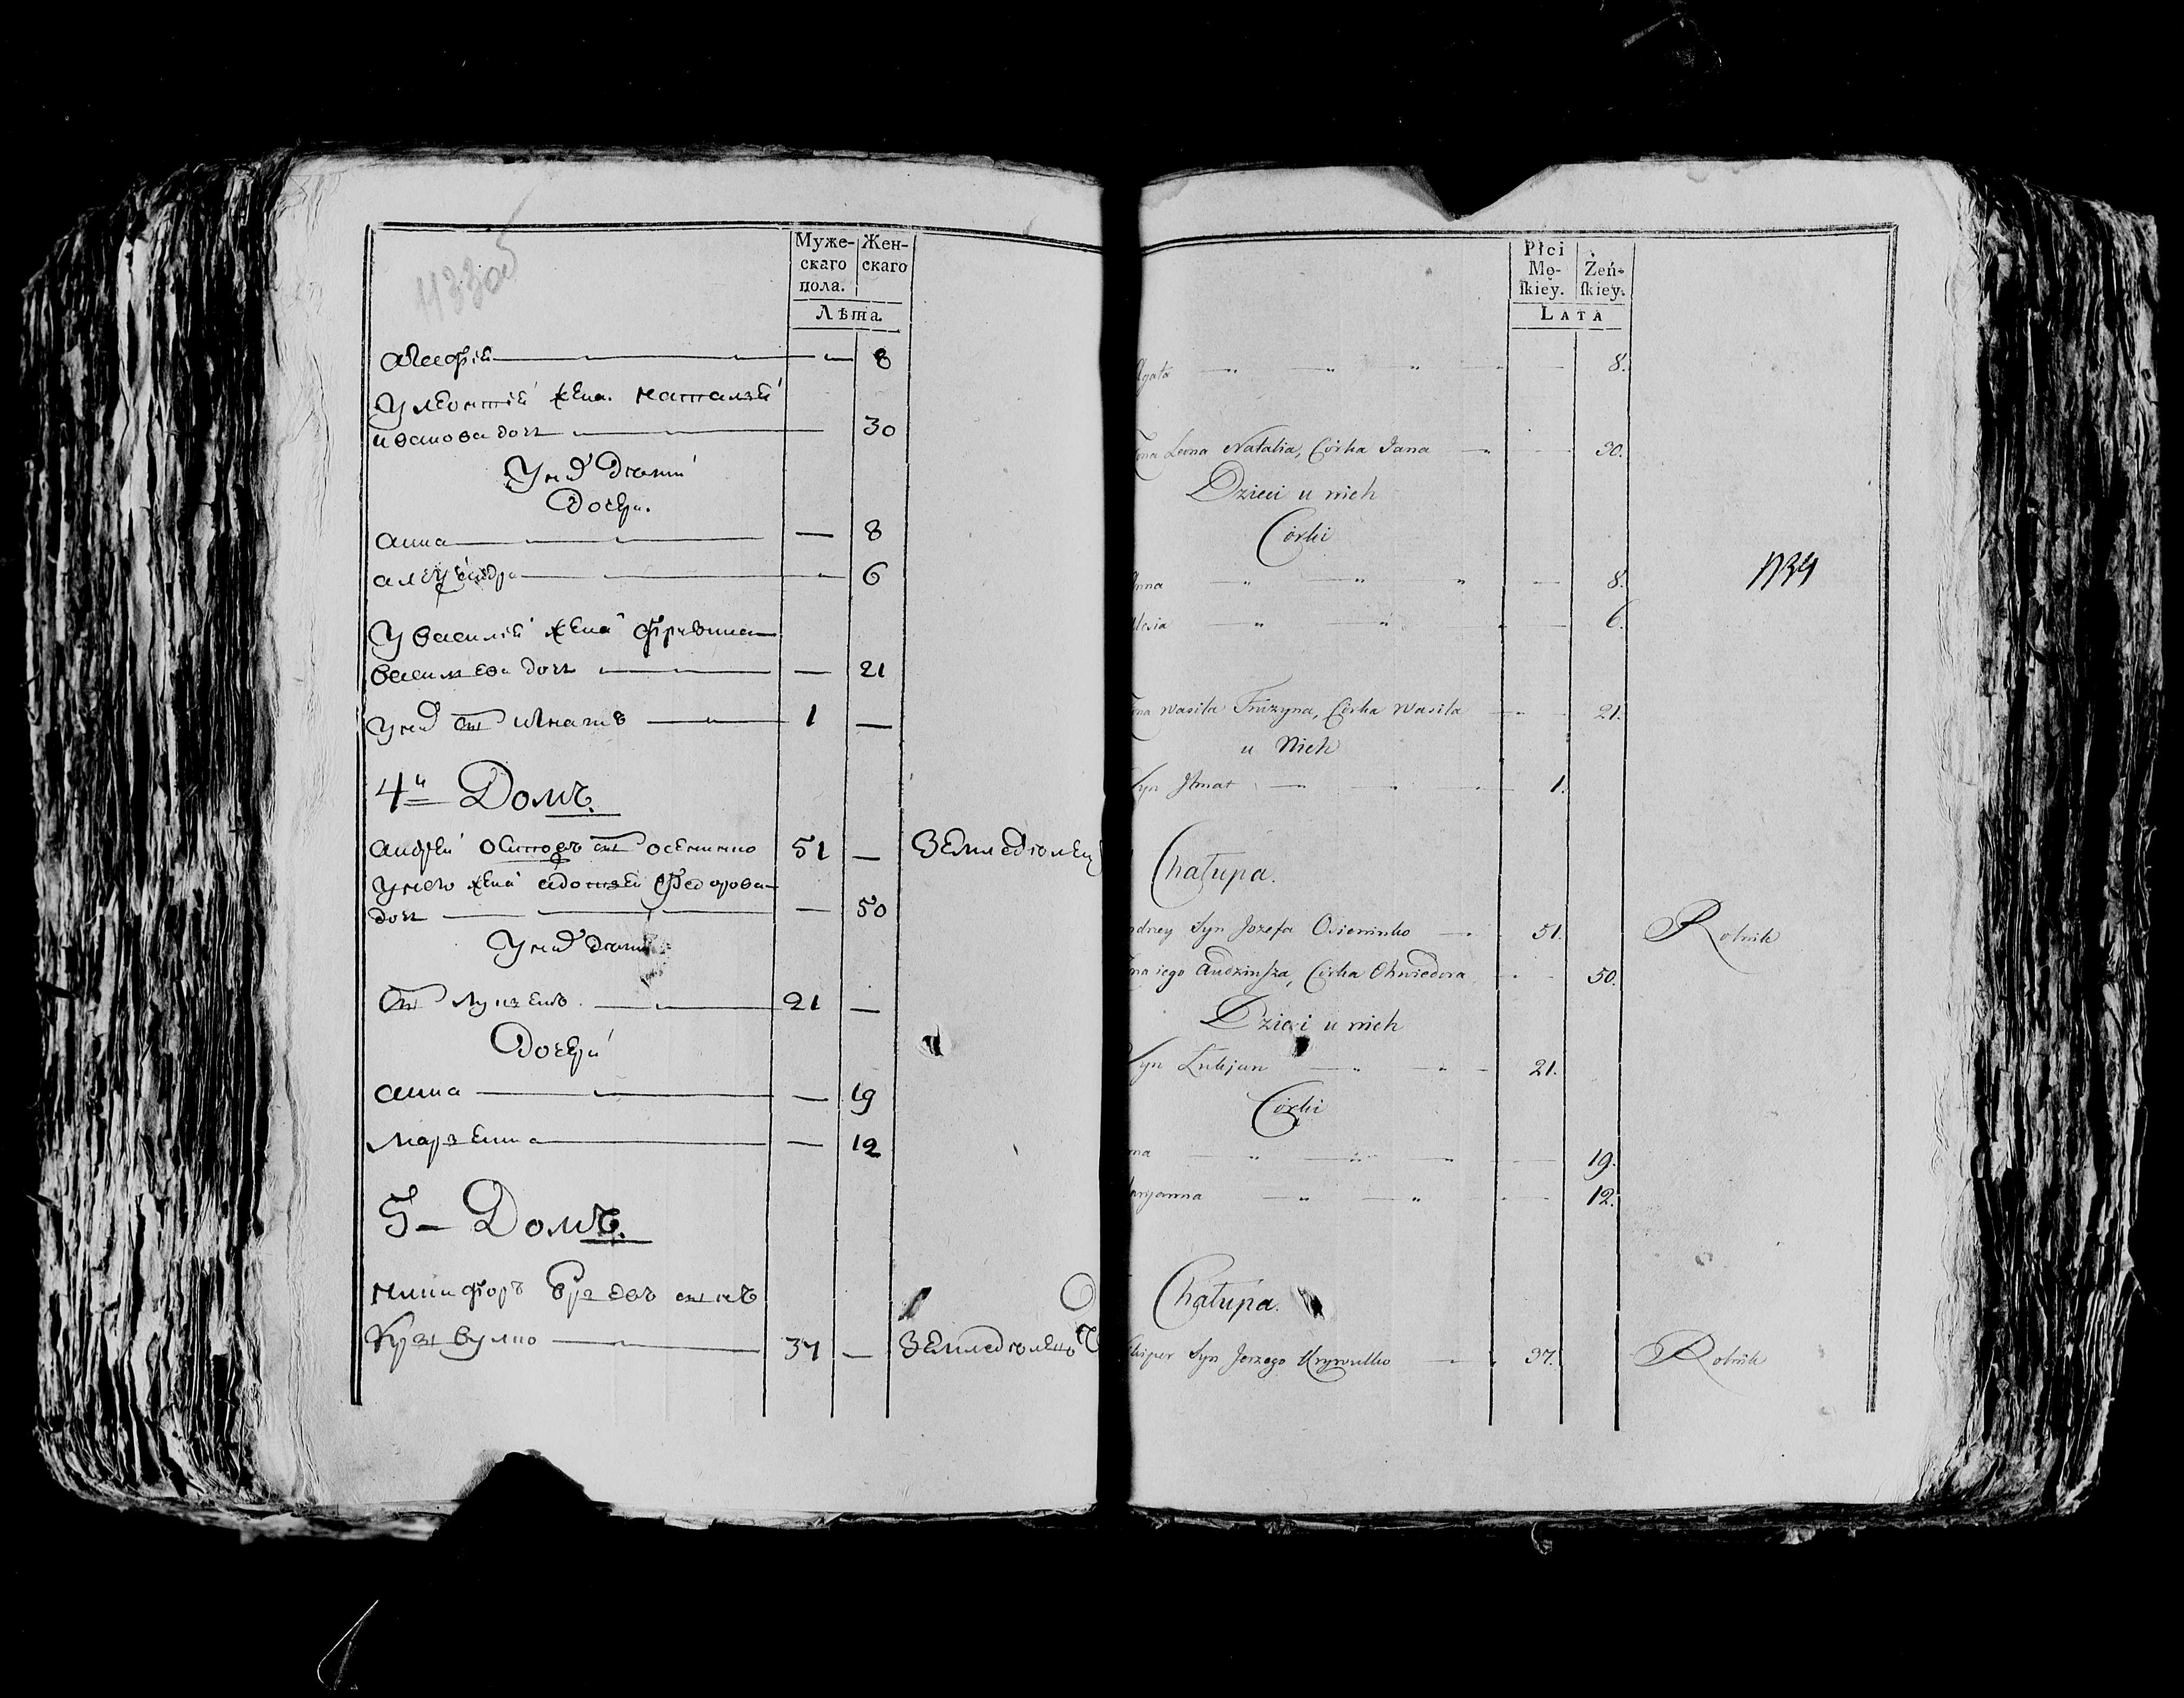 1133об
Муже-
скаго
пола.
Жен-
скаго
Лѣта.
8
жена наталья
Иванова дочь 30
У них дѣти
Дочери.
анна — 8
6
У василья жена
васильева дочь — 21
У них сынъ игнатъ 1 —
4й Домъ.
андрей Осиповъ сынъ осененко 51 — Земледѣлец
У него жена Федорова
дочь — 50
У них дѣти
Сынъ лукьянъ 21 —
Дочери
анна — 19
марьянна — 12
5 — Домъ.
никифоръ сынъ
37 — Земледѣлецъ
Płci
Mę-
ſkiey.
Żeń-
ſkiey.
LATA
Agata 8.
Żona Leona Natalia, Córka Jana 30.
Dzieci u nich
Córki
Anna 8.
Alesia 6.
Żona Wasila Fruzyna, Córka Wasila 21.
u Nich
Syn 1.
Chałupa.
Andrey Syn Jozefa Osieninko 51. Rolnik
Żona iego Audzinſza, Córka Chwiedora 50.
Dzieci u nich
Syn Łukjan 21.
Córki
Anna 19.
Maryanna 12.
Chałupa.
Syn Jerzego Krywulko 37. Rolnik
1134